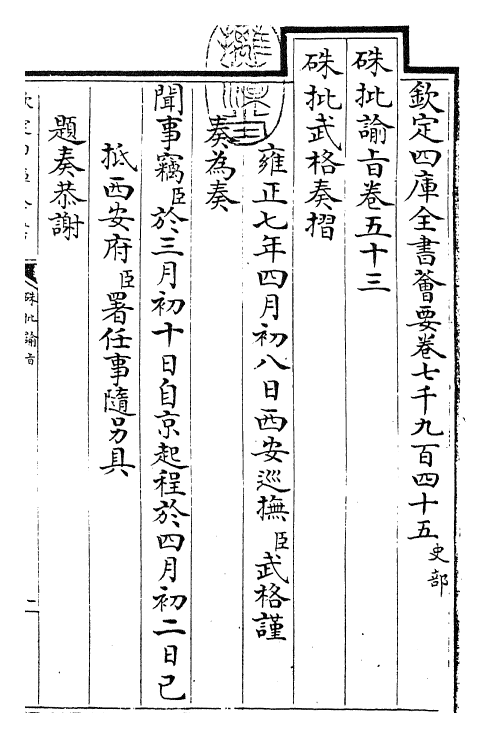 欽定四庫全書薈要卷七千九百四十五史部
硃批諭旨卷五十三
硃批武格奏摺
雍正七年四月初八日西安巡撫臣武格謹
奏為奏
聞事竊臣於三月初十日自京起程於四月初二日已
抵西安府臣署任事隨另具
題奏恭謝
硃批諭旨